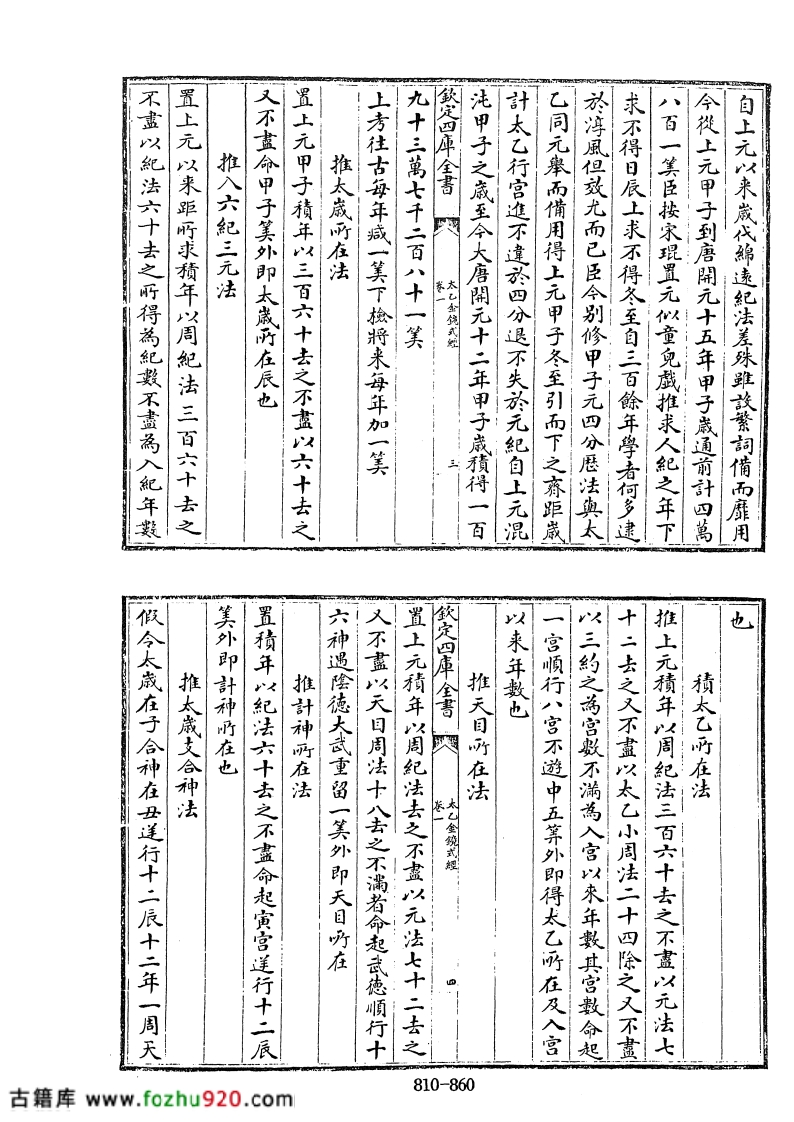 自上元以来歲代綿遠紀法差殊雖設繁詞備而靡用
今從上元甲子到唐開元十五年甲子歲通前計四萬
八百一筭臣按宋琨置元似童兒戲推求人紀之年下
求不得日辰上求不得冬至自三百餘年學者何多逮
於淳風但效尤而已臣今别修甲子元四分歷法與太
乙同元舉而備用得上元甲子冬至引而下之齊距歲
計太乙行宫進不違於四分退不失於元紀自上元混
沌甲子之歲至今大唐開元十二年甲子歲積得一百
欽定四庫全書
太乙金鏡式經
卷一
三
九十三萬七千二百八十一筭
上考往古每年減一筭下檢將来每年加一筭
推太歲所在法
置上元甲子積年以三百六十去之不盡以六十去之
又不盡命甲子筭外即太歲所在辰也
推入六紀三元法
置上元以来距所求積年以周紀法三百六十去之
不盡以紀法六十去之所得為紀數不盡為入紀年數
也
積太乙所在法
推上元積年以周紀法三百六十去之不盡以元法七
十二去之又不盡以太乙小周法二十四除之又不盡
以三約之為宫數不滿為入宫以來年數其宫數命起
一宫順行八宫不遊中五算外即得太乙所在及入宫
以來年數也
推天目所在法
欽定四庫全書
太乙金鏡式經
卷一
四
置上元積年以周紀法去之不盡以元法七十二去之
又不盡以天目周法十八去之不滿者命起武徳順行十
六神遇陰徳大武重留一筭外即天目所在
推計神所在法
置積年以紀法六十去之不盡命起寅宫逆行十二辰
筭外即計神所在也
推太歲支合神法
假令太歲在子合神在丑逆行十二辰十二年一周天
810-860
古籍库 www.fozhu920.com